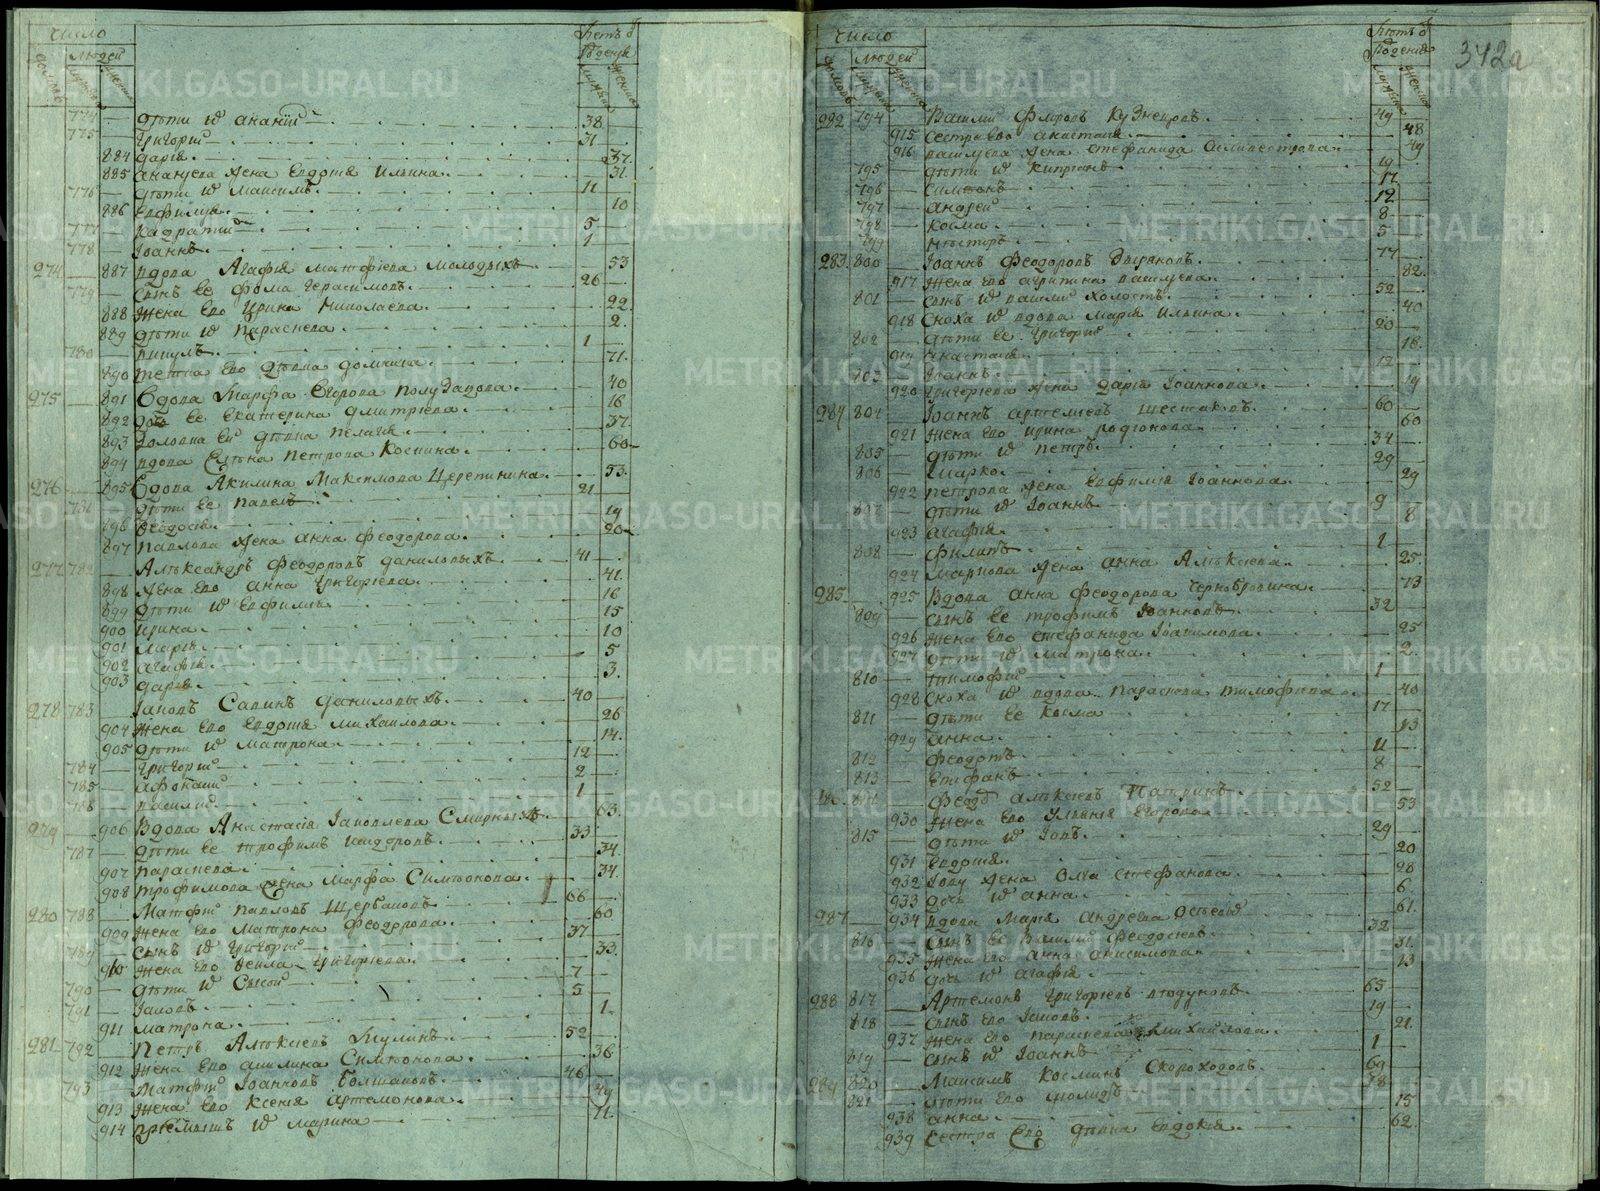 число
людей
774 дѣти их Ананiй 38
775 Григорiй 31
884 Дарiя 37.
885 Ананьева жена Евдокiя Ильина 31.
776 дѣти их Максимъ 11
886 Евфимiя 10
777 Кодратiй 5
778 Iоаннъ 1
274 887 вдова Агафiя Матфiева Молодыхъ 53
779 сынъ ее Фома Герасимовъ 26
888 жена его Ирина Николаева 22.
889 дѣти их Параскева 2.
780 1
890 тетка его дѣвка Домника 71.
275 891 вдова Марфа Егорова Полуздова 40
892 дочь ее Екатерина Дмитрiева 16
893 золовка ей дѣвка Пелагiя 37.
894 вдова Елѣна Петрова Коскина 60
276 895 вдова Акилина Максимова Черепкина 53.
781 дѣти ее Павелъ 21
896 Феодосiя 19
897 Павлова жена Анна Феодорова 20
277 782 Алѣксандръ Феодоровъ Даниловыхъ 41
898 жена его Анна Григорiева 41.
899 дѣти их Евфимiя 16
900 Ирина 15
901 Марiя 10
902 Агафiя 5
903 Дарiя 3.
278 783 Iаковъ Савинъ Даниловыхъ 40
904 жена его Евдокiя Михаилова 26
905 дѣти их Матрона 14.
784 Григорiй 12
785 Афонасiй 2
786 Василiй 1
279 906 вдова Анастасiя Iаковлева Смирныхъ 63.
787 дѣти ее Трофимъ Исидоровъ 33
907 Параскева 34.
908 Трофимова жена Марфа Симѣонова 34.
280 788 Матфiй Павловъ Щербаковъ 66
909 жена его Матрона Феодорова 60
789 сынъ их Григорiй 37
910 жена его Фекла Григорiева 33.
790 дѣти их Сысой 7
791 Iаковъ 5
911 Матрона 1
281 792 Петръ Алѣксiевъ Кулинъ 52
912 жена его Акилина Симѣонова 36.
793 Матфiй Iоанновъ Большаковъ 46
913 жена его Ксенiя Артемонова 49
914 прiемышъ их Марина 11.
число
людей
342а
282 794 Василiй Фирсовъ Кузнецовъ 49
915 сестра его Анастасiя 48
916 Васильева жена Стефанида Селивестрова 49
795 дѣти их Кипрiянъ 19
796 Симеонъ 17
797 Андрей 12
798 Косма 8
799 Несторъ 5
283 800 Iоаннъ Феодоровъ Дыряковъ 77
917 жена его Агрипина Васильева 82.
801 сынъ их Василiй холостъ 52
918 сноха их вдова Марiя Ильина 40
802 дѣти ее Григорiй 20
919 Анастасiя 18.
803 Iоаннъ 12
920 Григорiева жена Дарiя Iоаннова 19
284 804 Iоаннъ Артемiевъ Шестаковъ 60
921 жена его Ирина Родiонова 60
805 дѣти их Петръ 34
806 Марко 29
922 Петрова жена Евфимiя Iоаннова 29
807 дѣти их Iоаннъ 9
923 Агафiя 8
808 Филипъ 1
924 Маркова жена Анна Алѣксiева 25.
285 925 вдова Анна Феодорова Чернобровина 73
809 сынъ ее Трофимъ Iоанновъ 32
926 жена его Стефанида Iоакимова 25
927 дѣти их Матрона 2
810 Тимофiй 1
928 сноха их вдова Параскева Тимофiева 40
811 дѣти ее Косма 17
929 Анна 13
812 Феодотъ 11
813 Стефанъ 8
814 Феодоръ Алѣксiевъ Патринъ 52
930 жена его Улиянiя Егорова 53
815 дѣти их Iовъ 29
931 Евдокiя 20
932 Iову жена Олга Стефанова 28
933 дочь их Анна 6
287 934 вдова Марiя Андреева 61.
816 сынъ ее Василiй Феодосiевъ 32
935 жена его Анна Анисимова 31.
936 дочь их Агафiя 13
288 817 Артемонъ Григорiевъ 65
818 сынъ его Iаковъ 19
937 жена его Параскева Михайлова 21.
819 сынъ их Iоаннъ 1
289 820 Максимъ Косминъ Скороходовъ 69
821 дѣти его 18
938 Анна 15
939 сестра его дѣвка Евдокiя 62.
METRIKI.GASO-URAL.RU